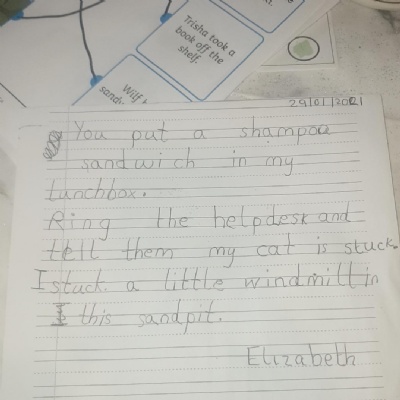 Trisha took a
book off the
shelf.
Wilf
sand
29/01/2021
You put a shampoo
sandwich in my
lunchbox.
Ring the helpdesk and
tell them my cat is stuck.
I stuck a little windmill in
this sandpit.
Elizabeth